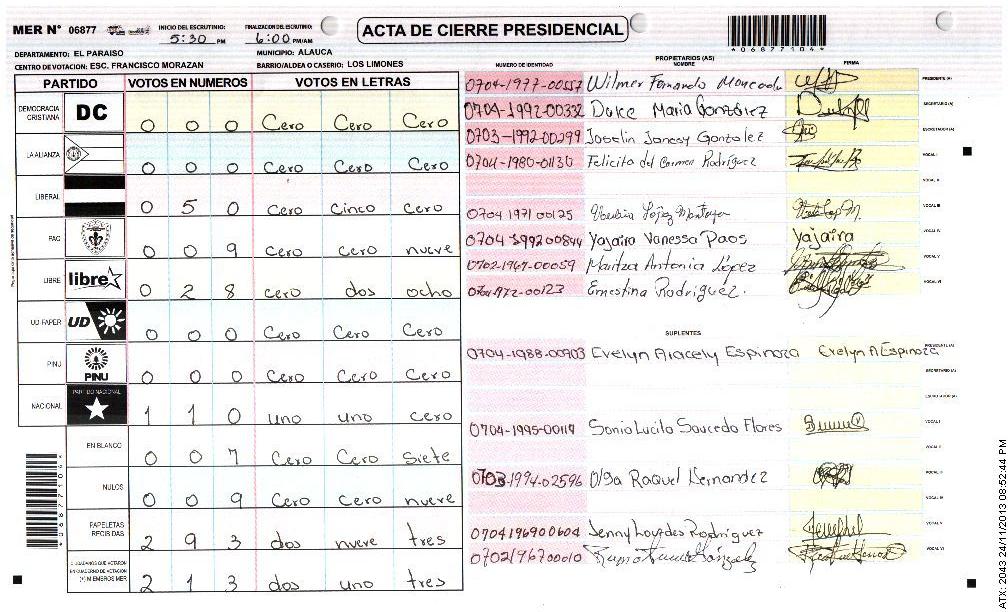 MER N° 06877
INICIO DEL ESCRUTINIO:
5:30 PM
FINALIZACION DEL ESCRUTINIO:
6:00 PM/AM
ACTA DE CIERRE PRESIDENCIAL
*06877104*
DEPARTAMENTO: EL PARAISO MUNICIPIO: ALAUCA
CENTRO DE VOTACION: ESC. FRANCISCO MORAZAN BARRIO/ALDEA O CASERIO: LOS LIMONES
PARTIDO VOTOS EN NUMEROS VOTOS EN LETRAS
DEMOCRACIA CRISTIANA DC 0 0 0 Cero Cero Cero
LA ALIANZA 0 0 0 Cero Cero Cero
LIBERAL 0 5 0 Cero Cinco Cero
PAC 0 0 9 Cero Cero nueve
LIBRE libre 0 2 8 cero dos ocho
UD FAPER UD 0 0 0 Cero Cero Cero
PINU PINU 0 0 0 Cero Cero Cero
NACIONAL PARTIDO NACIONAL 1 1 0 uno uno cero
EN BLANCO 0 0 7 Cero Cero Siete
NULOS 0 0 9 Cero Cero nueve
PAPELETAS RECIBIDAS 2 9 3 dos nueve tres
CIUDADANOS QUE VOTARON EN CUADERNO DE VOTACION (+) MIEMBROS MER 2 1 3 dos uno tres
PROPIETARIOS (AS)
NUMERO DE IDENTIDAD NOMBRE FIRMA
0704-1977-00557 Wilmer Fernando Moncada PRESIDENTE (A)
0704-1992-00332 Dulce Maria González SECRETARIO (A)
0703-1992-00299 Joselin Jancsy Gonzalez ESCRUTADOR (A)
0704-1980-01130 Felicita del Carmen Rodríguez VOCAL I
VOCAL II
0704 1971 00125 López Montoya VOCAL III
0704 1992 00844 Yajaira Vanessa Paos yajaira VOCAL IV
0702-1967-00059 Maritza Antonia López VOCAL V
0704-1972-00123 Ernestina Rodriguez. VOCAL VI
SUPLENTES
0704-1988-00903 Evelyn Aracely Espinoza Evelyn A Espinoza PRESIDENTE (A)
SECRETARIO (A)
ESCRUTADOR (A)
0704-1995-00119 Sonia Lucila Saucedo Flores VOCAL I
VOCAL II
0703-1994-02596 Olga Raquel Hernandez VOCAL III
VOCAL IV
0704196900604 Jenny Lourdes Rodriguez VOCAL V
0702196700010 González VOCAL VI
ATX: 2043 24/11/2013 08:52:44 PM